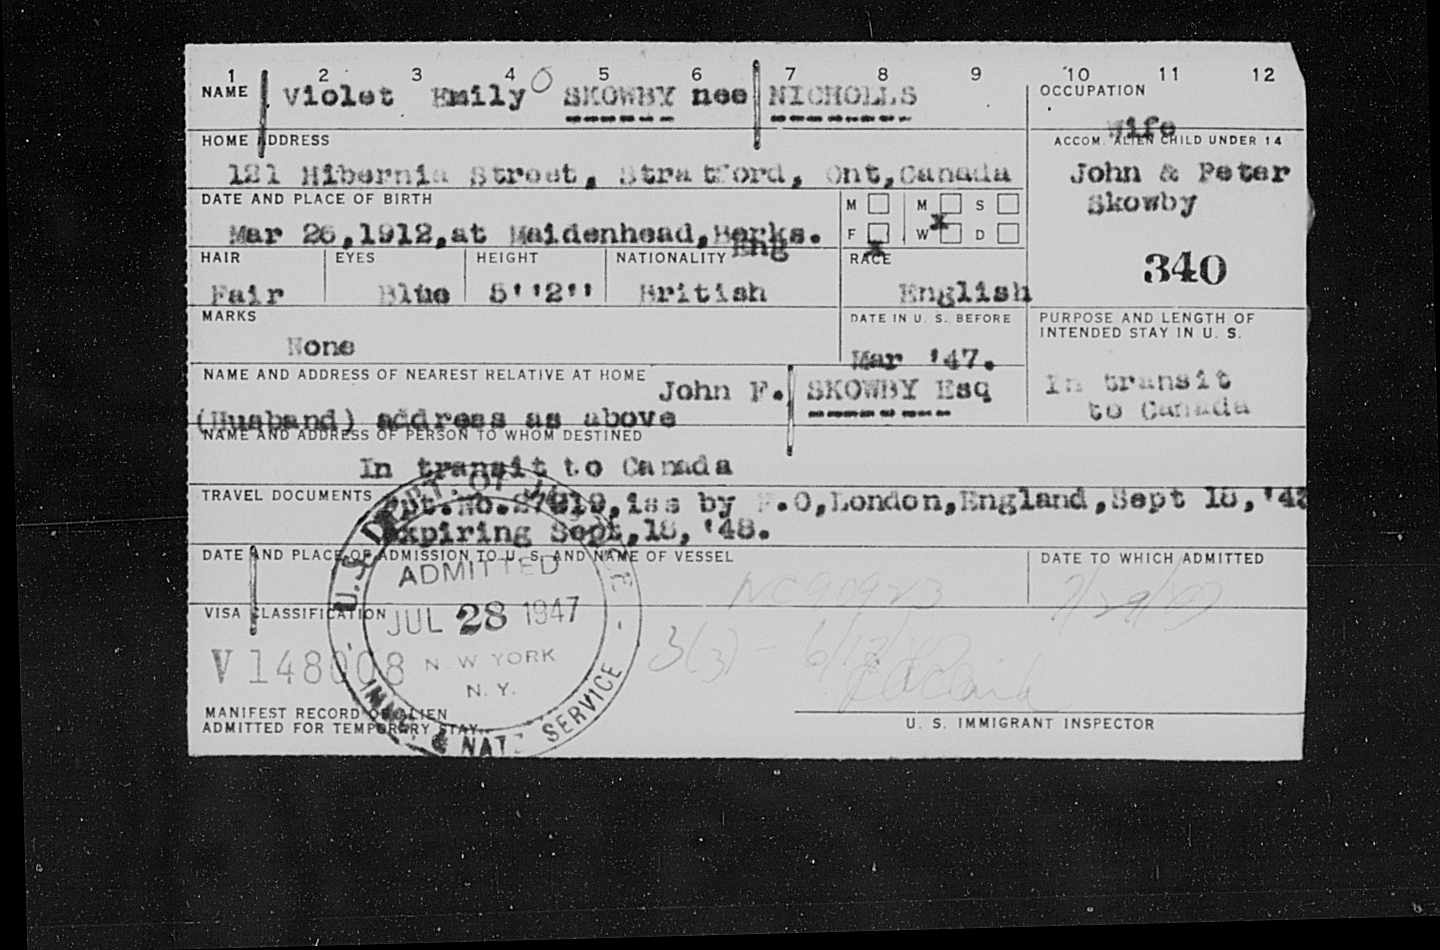 1 2 3 4 5 6 7 8 9 10 11 12
NAME Violet Emily SKOWBY nee NICHOLLS
OCCUPATION
Wife
HOME ADDRESS
121 Hibernia Street, Stratford, Ont, Canada
ACCOM. ALIEN CHILD UNDER 14
John & Peter
Skowby
340
DATE AND PLACE OF BIRTH
Mar 26,1912,at Maidenhead,Berks.
Eng
M M S
F x W x D
HAIR EYES HEIGHT NATIONALITY RACE
Fair Blue 5''2'' British English
MARKS
None
DATE IN U. S. BEFORE
Mar '47.
PURPOSE AND LENGTH OF
INTENDED STAY IN U. S.
In transit
to Canada
NAME AND ADDRESS OF NEAREST RELATIVE AT HOME
John F. SKOWBY Esq
(Husband) address as above
NAME AND ADDRESS OF PERSON TO WHOM DESTINED
In transit to Canada
TRAVEL DOCUMENTS
iss by F.O,London,England,Sept 18,
Expiring Sept,18, '48.
DATE AND PLACE OF ADMISSION TO U. S. AND NAME OF VESSEL
DATE TO WHICH ADMITTED
U.S. DEPT. OF JUSTICE
ADMITTED
JUL 28 1947
NEW YORK
N. Y.
IMMIG. & NATZ. SERVICE
VISA CLASSIFICATION
V148008
3(3) -
MANIFEST RECORD OF ALIEN
ADMITTED FOR TEMPORARY STAY
U. S. IMMIGRANT INSPECTOR